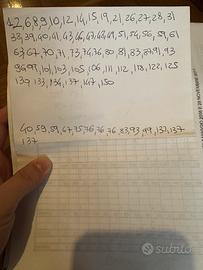 1,2,6,8,9,10,12,14,15,19,21,26,27,28,31
33,39,40,41,43,46,47,48,49,51,54,56,59,61
63,67,70,71,73,74,76,80,81,83,87,91,93
96,99,101,103,105,106,111,112,118,122,125
130,133,136,137,147,150
40,59,59,67,75,76,76,76,83,93,99,132,137
137
subito